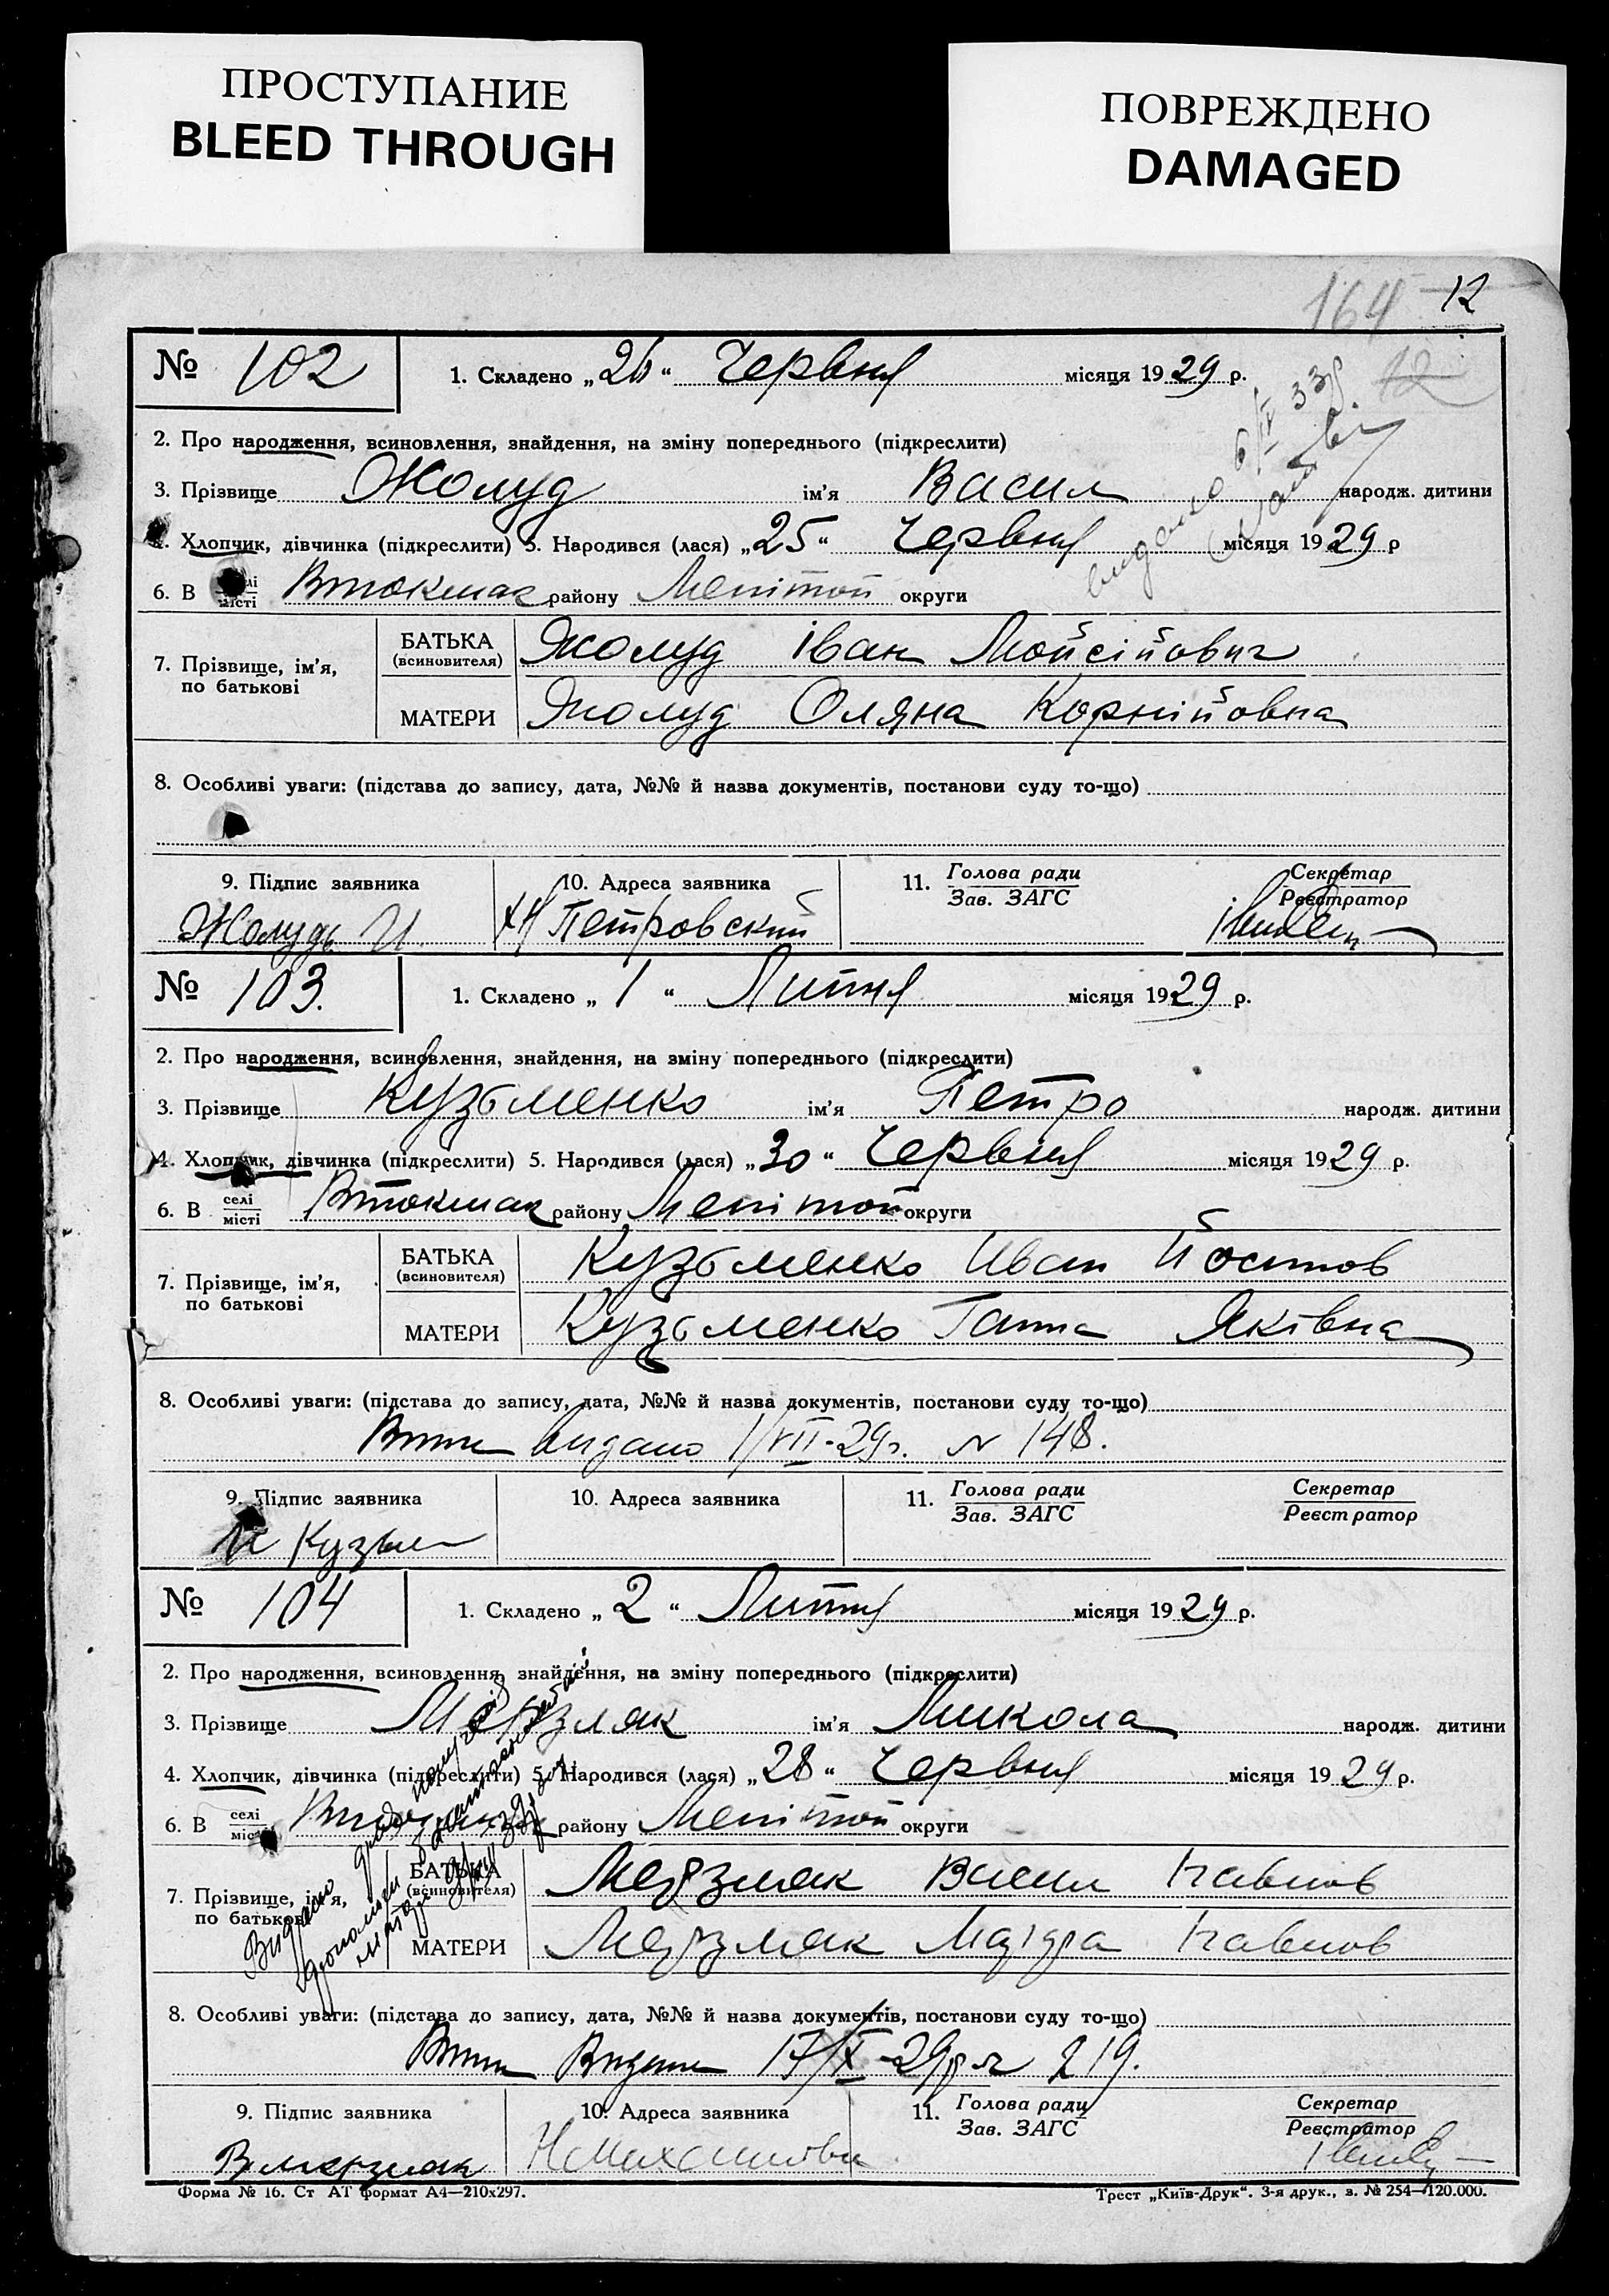 ПРОСТУПАНИЕ
BLEED THROUGH
ПОВРЕЖДЕНО
DAMAGED
164 12
12
№ 102 1. Складено „26“ Червня місяця 1929 р.
видано 6/IV 33р
2. Про народження, всиновлення, знайдення, на зміну попереднього (підкреслити)
3. Прізвище Жолуд ім'я Васил народж. дитини
4. Хлопчик, дівчинка (підкреслити) 5. Народився (лася) „25“ Червня місяця 1929 р
6. В селі місті Втокмак району Мелітоп округи
7. Прізвище, ім'я, по батькові
БАТЬКА (всиновителя) Жолуд Іван Мойсійович
МАТЕРИ Жолуд Оляна Корнійовна
8. Особливі уваги: (підстава до запису, дата, №№ й назва документів, постанови суду то-що)
9. Підпис заявника 10. Адреса заявника 11. Голова ради Зав. ЗАГС Секретар Реєстратор
Жолудь И. Петровский
№ 103. 1. Складено „1“ Липня місяця 1929 р.
2. Про народження, всиновлення, знайдення, на зміну попереднього (підкреслити)
3. Прізвище Кузьменко ім'я Петро народж. дитини
4. Хлопчик, дівчинка (підкреслити) 5. Народився (лася) „30“ Червня місяця 1929 р.
6. В селі місті Втокмак району Мелітоп округи
7. Прізвище, ім'я, по батькові
БАТЬКА (всиновителя) Кузьменко Иван Йосипов
МАТЕРИ Кузьменко Ганна Яківна
8. Особливі уваги: (підстава до запису, дата, №№ й назва документів, постанови суду то-що)
видано 1/VII-29г. N 148.
9. Підпис заявника 10. Адреса заявника 11. Голова ради Зав. ЗАГС Секретар Реєстратор
И Кузьм
№ 104 1. Складено „2“ Липня місяця 1929 р.
2. Про народження, всиновлення, знайдення, на зміну попереднього (підкреслити)
3. Прізвище Мерзляк ім'я Микола народж. дитини
4. Хлопчик, дівчинка (підкреслити) 5. Народився (лася) „28“ Червня місяця 1929 р.
6. В селі місті Втокмак району Мелітоп округи
7. Прізвище, ім'я, по батькові
БАТЬКА (всиновителя) Мерзляк Васил Павлов
МАТЕРИ Мерзляк Павлов
Видано для
допомоги
8. Особливі уваги: (підстава до запису, дата, №№ й назва документів, постанови суду то-що)
Видано 17/X-29р 219.
9. Підпис заявника 10. Адреса заявника 11. Голова ради Зав. ЗАГС Секретар Реєстратор
В Мерзляк
Форма № 16. Ст АТ формат А4—210х297. Трест „Київ-Друк“. 3-я друк., з. № 254—120.000.